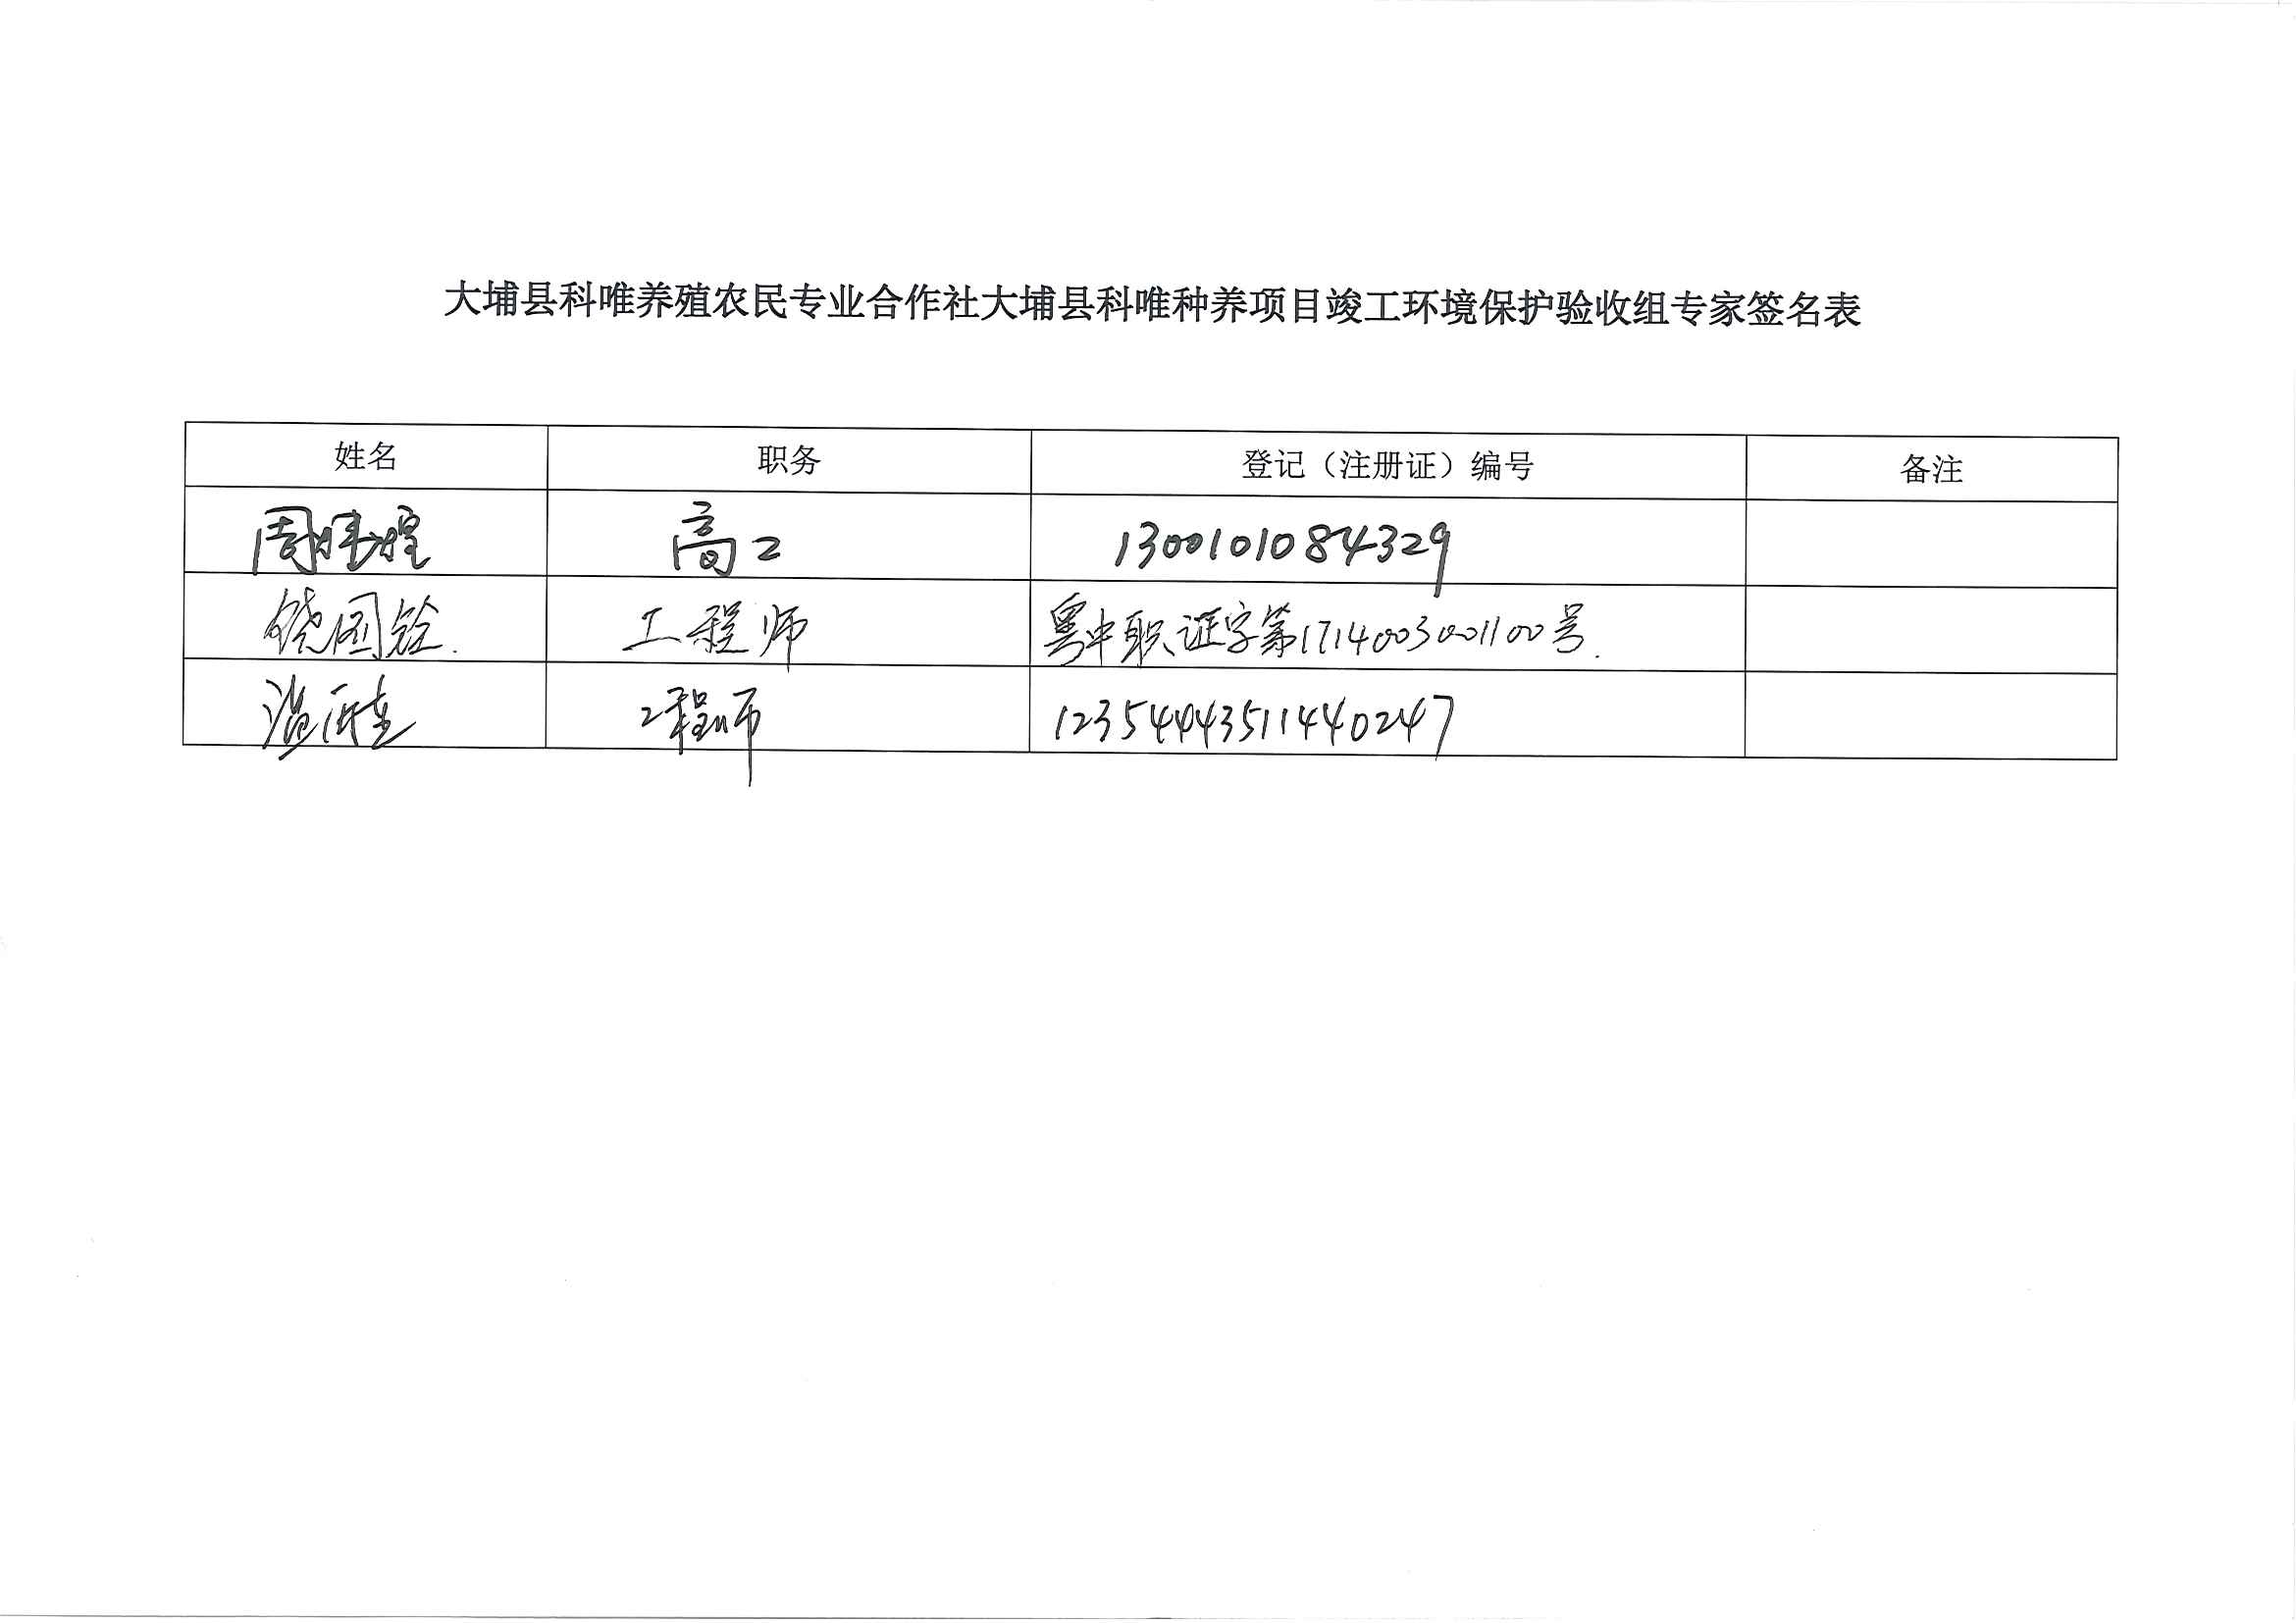 大埔县科唯养殖农民专业合作社大埔县科唯种养项目竣工环境保护验收组专家签名表
姓名 职务 登记（注册证）编号 备注
周 高工 1300101084329
饶国铨. 工程师 粤中职证字第1714003001100号.
温 工程师 12354443511440247